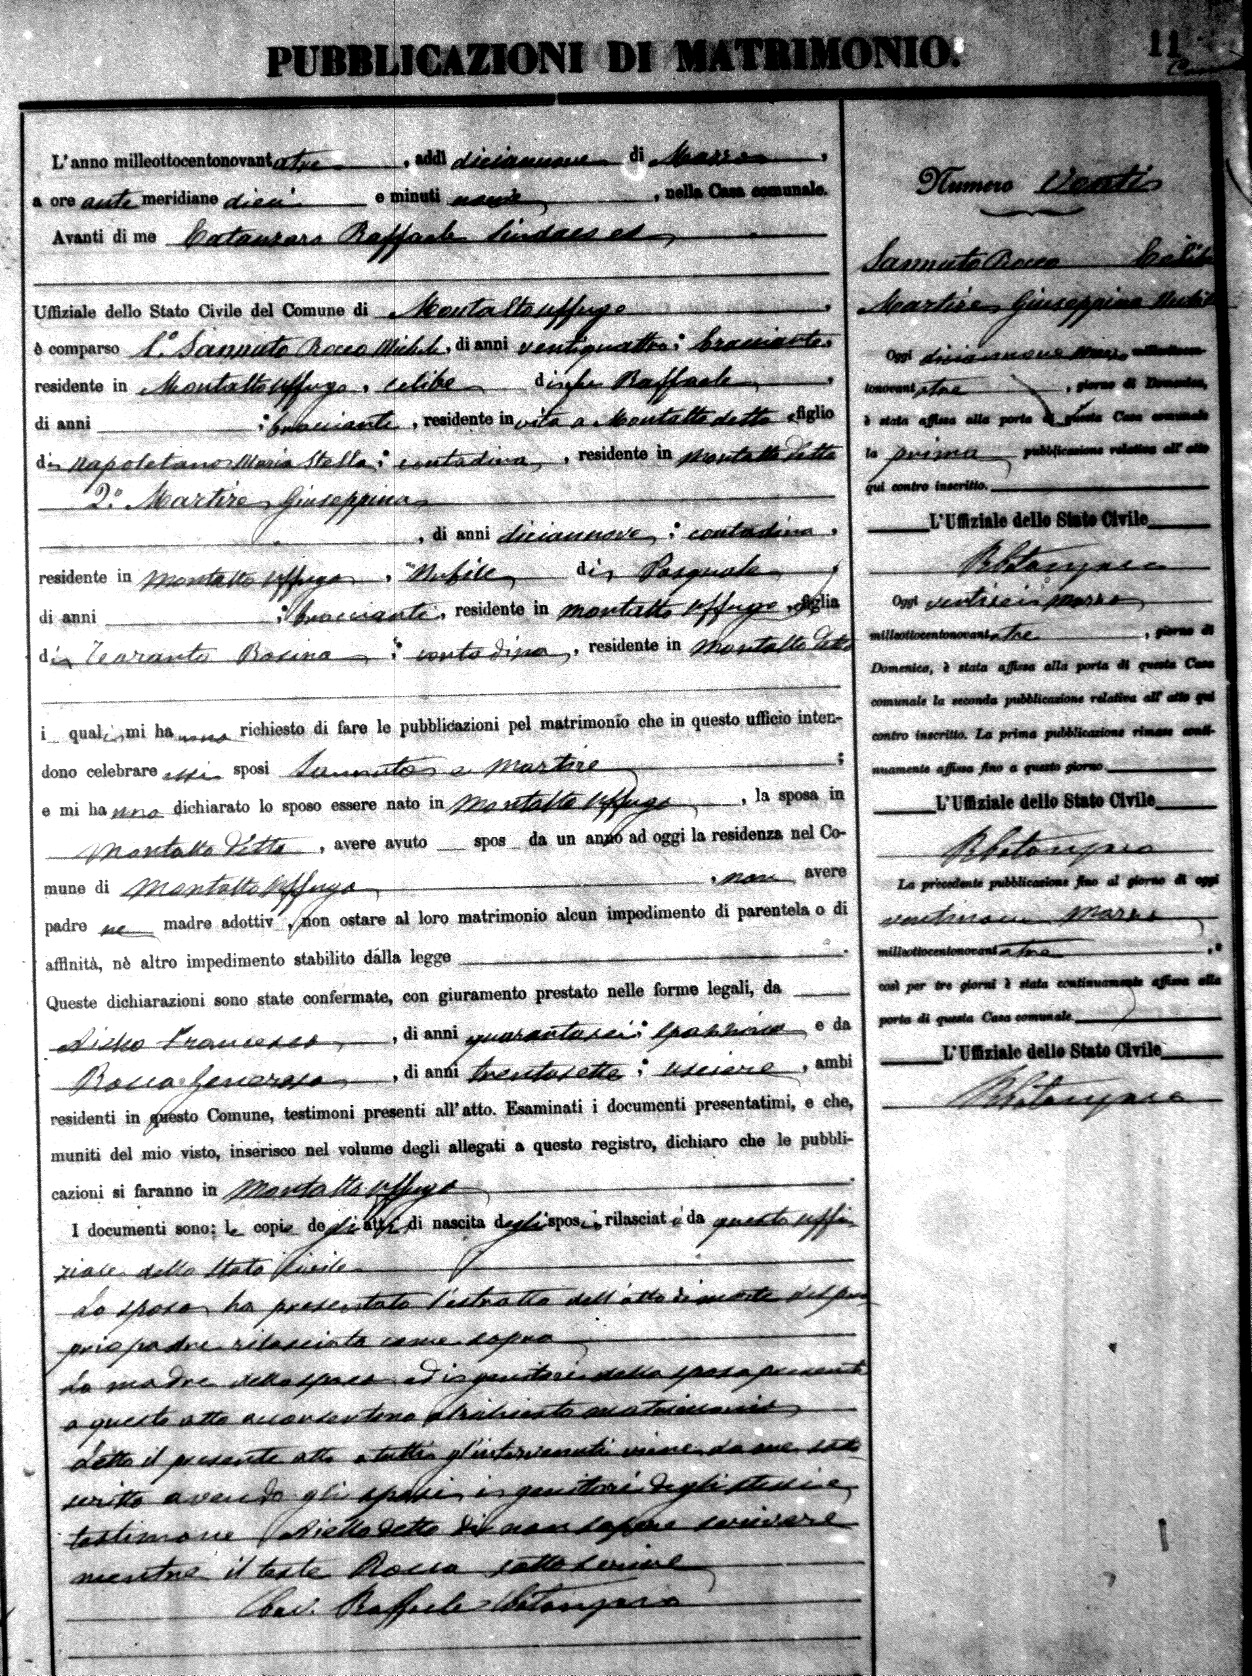 PUBBLICAZIONI DI MATRIMONIO.
11
L'anno milleottocentonovantatre, addì diciannove di Marzo,
a ore ante meridiane dieci e minuti nove, nella Casa comunale.
Avanti di me Catanzaro Raffaele Sindaco ed
Uffiziale dello Stato Civile del Comune di Montalto Uffugo,
è comparso 1.° Sannuto Rocco Michele, di anni ventiquattro; bracciante,
residente in Montalto Uffugo, celibe di fu Raffaele,
di anni ; bracciante, residente in vita a Montalto detto, figlio
di Napoletano Maria Stella; contadina, residente in Montalto detto
2.° Martire Giuseppina
, di anni diciannove; contadina,
residente in Montalto Uffugo, Nubile di Pasquale,
di anni ; bracciante, residente in Montalto Uffugo, figlia
di Taranto Rosina; contadina, residente in Montalto detto
i quali mi hanno richiesto di fare le pubblicazioni pel matrimonio che in questo ufficio inten-
dono celebrare essi sposi Sannuto e Martire;
e mi hanno dichiarato lo sposo essere nato in Montalto Uffugo, la sposa in
Montalto detto, avere avuto spos da un anno ad oggi la residenza nel Co-
mune di Montalto Uffugo, non avere
padre ne madre adottiv, non ostare al loro matrimonio alcun impedimento di parentela o di
affinità, nè altro impedimento stabilito dalla legge.
Queste dichiarazioni sono state confermate, con giuramento prestato nelle forme legali, da
Aiello Francesco, di anni quarantasei; spazzino e da
Rocca Generoso, di anni trentasette; usciere, ambi
residenti in questo Comune, testimoni presenti all'atto. Esaminati i documenti presentatimi, e che,
muniti del mio visto, inserisco nel volume degli allegati a questo registro, dichiaro che le pubbli-
cazioni si faranno in Montalto Uffugo.
I documenti sono: le copie degli atti di nascita degli sposi, rilasciate da questo Uffi
ziale dello Stato Civile
Lo sposo ha presentato l'estratto dell'atto di morte del pro
prio padre rilasciato come sopra
La madre dello sposo ed i genitori della sposa presenti
a questo atto acconsentono al richiesto matrimonio
Letto il presente atto a tutti gl'intervenuti viene da me sotto
scritto avendo gli sposi i genitori degli stessi e
testimone Aiello detto di non sapere scrivere
mentre il teste Rocca sottoscrive
Cav. Raffaele Catanzaro
Numero Venti
Sannuto Rocco Celibe
Martire Giuseppina Nubile
Oggi diciannove Marzo milleottocen-
tonovantatre, giorno di Domenica,
è stata affissa alla porta di questa Casa comunale
la prima pubblicazione relativa all'atto
qui contro inscritto.
L'Uffiziale dello Stato Civile
R Catanzaro
Oggi ventisei marzo
milleottocentonovantatre, giorno di
Domenica, è stata affissa alla porta di questa Casa
comunale la seconda pubblicazione relativa all'atto qui
contro inscritto. La prima pubblicazione rimase conti-
nuamente affissa fino a questo giorno.
L'Uffiziale dello Stato Civile
R Catanzaro
La precedente pubblicazione fino al giorno di oggi
ventinove Marzo
milleottocentonovantatre, e
così per tre giorni è stata continuamente affissa alla
porta di questa Casa comunale.
L'Uffiziale dello Stato Civile
R Catanzaro